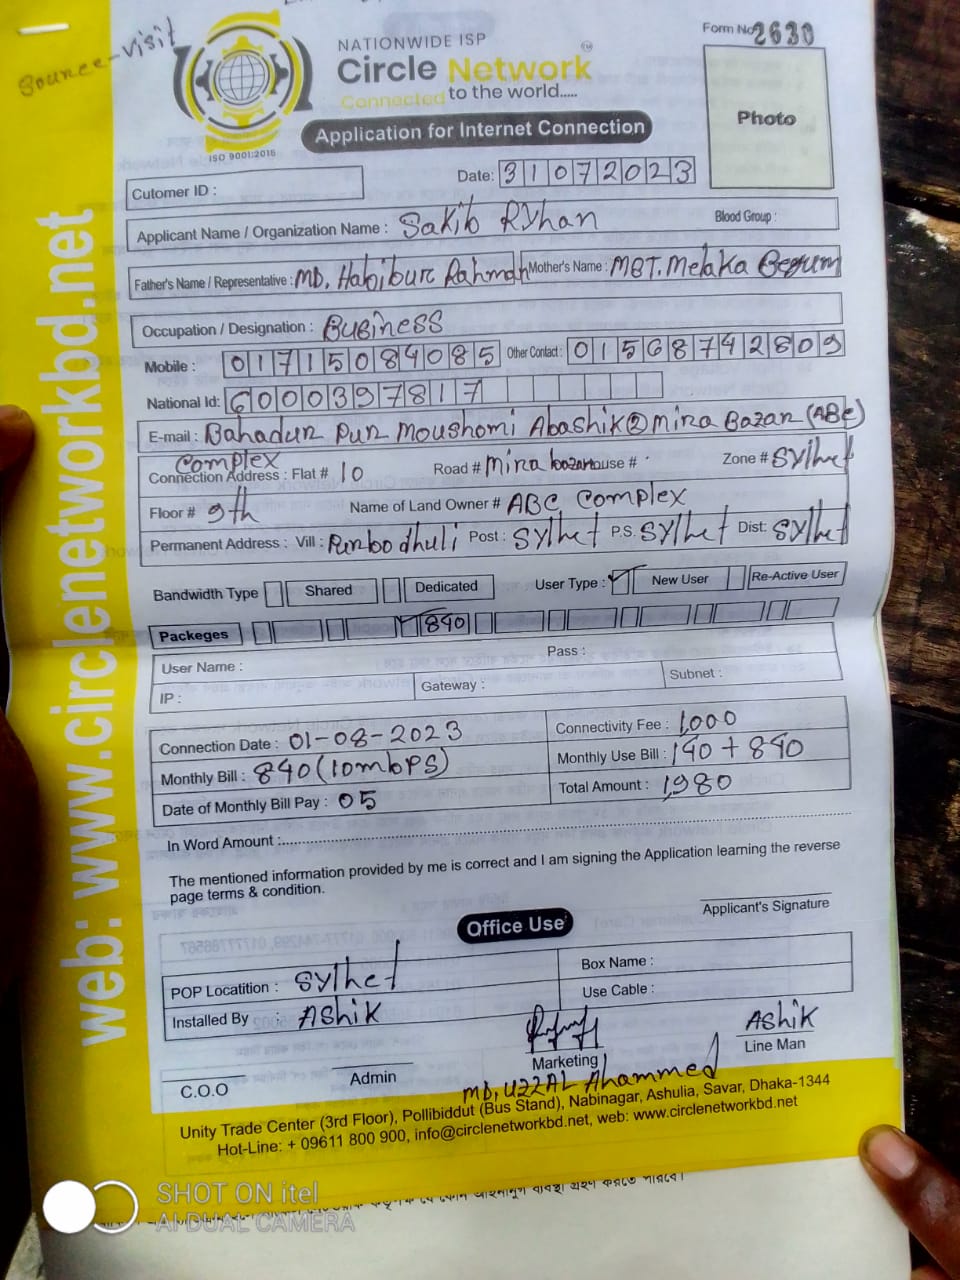 Source-visit
NATIONWIDE ISP
Circle Network
Connected to the world.....
ISO 9001:2015
Form No 2630
Photo
Application for Internet Connection
Date: 31072023
Cutomer ID :
Applicant Name / Organization Name : Sakib RYhan Blood Group :
Father's Name / Representative : MD. Habibur Rahman Mother's Name : MST. Melaka Begum
Occupation / Designation : Business
Mobile : 01715084085 Other Contact : 01568742809
National Id: 6000397817
E-mail : Bahadur Pur Moushomi Abashik Mira Bazar (ABC)
Complex
Connection Address : Flat # 10 Road # Mira bozar House # Zone # Sylhet
Floor # 9th Name of Land Owner # ABC Complex
Permanent Address : Vill : Purbodhuli Post : Sylhet P.S. Sylhet Dist: Sylhet
Bandwidth Type Shared Dedicated User Type : ✓ New User Re-Active User
Packeges ✓ 840
User Name : Pass :
IP : Gateway : Subnet :
Connection Date : 01-08-2023 Connectivity Fee : 1,000
Monthly Bill : 840 (10mbPS) Monthly Use Bill : 140 + 840
Date of Monthly Bill Pay : 05 Total Amount : 1,980
In Word Amount :
The mentioned information provided by me is correct and I am signing the Application learning the reverse
page terms & condition.
Applicant's Signature
Office Use
POP Locatition : Sylhet Box Name :
Installed By : AShiK Use Cable :
AShiK
C.O.O Admin Marketing Line Man
MD. UZZAL Ahammed
Unity Trade Center (3rd Floor), Pollibiddut (Bus Stand), Nabinagar, Ashulia, Savar, Dhaka-1344
Hot-Line: + 09611 800 900, info@circlenetworkbd.net, web: www.circlenetworkbd.net
web: www.circlenetworkbd.net
SHOT ON itel
AI DUAL CAMERA